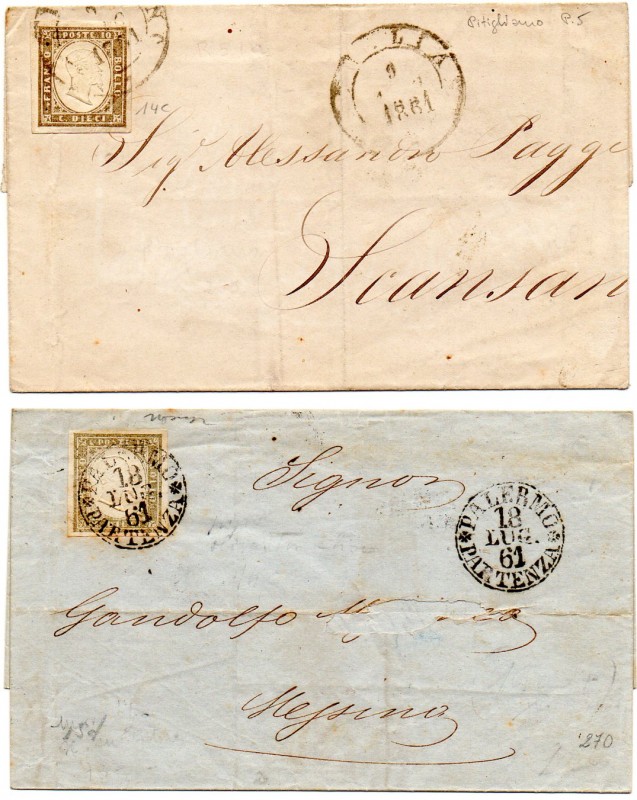 Pitigliano P.5
C. POSTE 10
FRANCO
BOLLO
C. DIECI
14c
LIA
9
1861
Sigr Alessandro Pagge
Scansan
PALERMO
18
LUG.
61
PARTENZA
Signor
PALERMO
18
LUG.
61
PARTENZA
Gandolfo
Messina
270